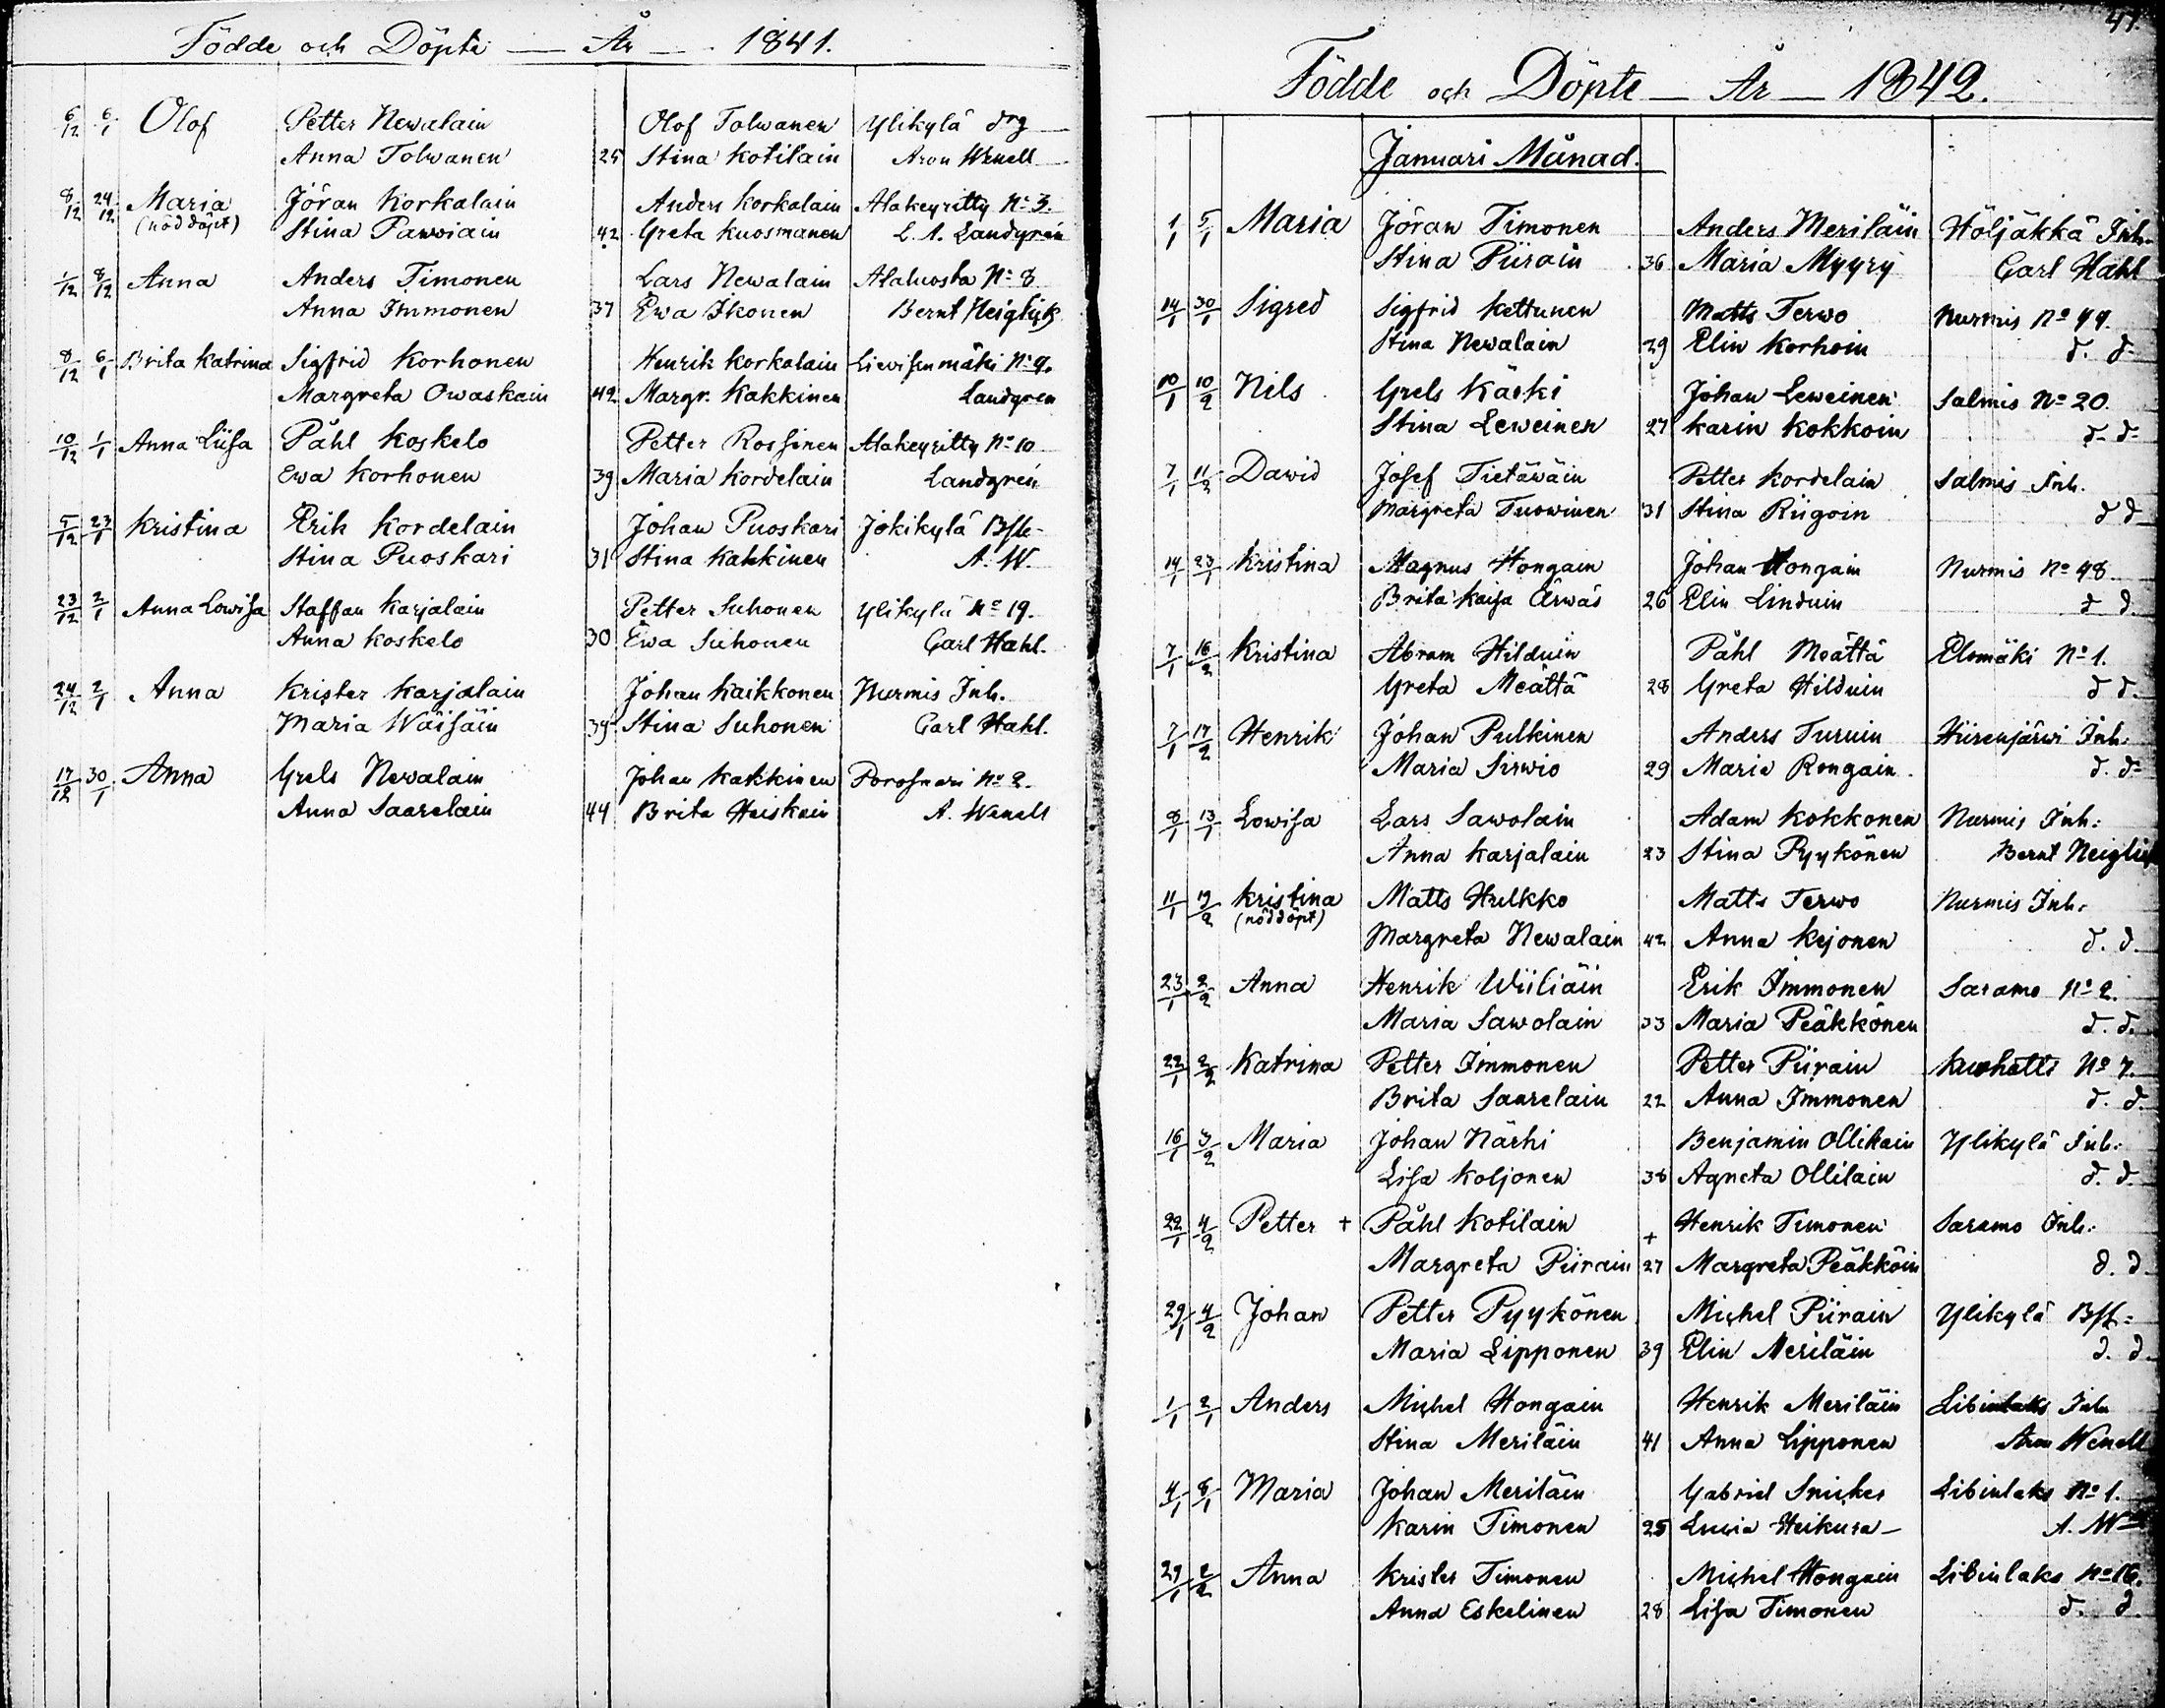 Födde och Döpte — År — 1841.
6/12 6/1 Olof Petter Newalain Olof Tolwanen Ylikylä drg
Anna Tolwanen 25 Stina Kotilain Aron Wenell
8/12 24/12 Maria Jöran Korkalain Anders Korkalain Alakeyritty No 3.
(nöddöpt) Stina Parwiain 42 Greta Kuosmanen L. A. Landgrén
1/12 8/12 Anna Anders Timonen Lars Newalain Alaluosta No 8
Anna Immonen 37 Ewa Ikonen Bernt Neiglick
8/12 6/1 Brita Katrina Sigfrid Korhonen Henrik Korkalain Liewisenmäki No 9.
Margreta Owaskain 42 Margr. Kakkinen Landgren
10/12 1/1 Anna Liisa Påhl Koskelo Petter Rossinen Alakeyritty No 10
Ewa Korhonen 39 Maria Kordelain Landgrén
5/12 23/1 Kristina Erik Kordelain Johan Puoskari Jokikylä Bfl-
Stina Puoskari 31 Stina Kakkinen A. W.
23/12 2/1 Anna Lowisa Staffan Karjalain Petter Suhonen Ylikylä No 19.
Anna Koskelo 30 Ewa Suhonen Carl Hahl.
24/12 2/1 Anna Krister Karjalain Johan Kaikkonen Nurmis Inh.
Maria Wäisäin 39 Stina Suhonen Carl Hahl.
17/12 30/1 Anna Grels Newalain Johan Kakkinen Porosaari No 2.
Anna Saarelain 44 Brita Heiskain A. Wenell
47.
Födde och Döpte — År — 1842.
Januari Månad.
1/1 5/1 Maria Jöran Timonen Anders Meriläin Höljäkkä Inh.
Stina Piirain 36 Maria Myyry Carl Hahl
14/1 30/1 Sigred Sigfrid Kettunen Matts Terwo Nurmis No 44.
Stina Newalain 29 Elin Korhoin d. d-
10/1 10/2 Nils Grels Käski Johan Leweinen Salmis No 20.
Stina Leweinen 27 Karin Kokkoin d- d-
7/1 11/2 Dawid Josef Tietäwäin Petter Kordelain Salmis Inh.
Margreta Tuowinen 31 Stina Riigoin d d
14/1 23/1 Kristina Magnus Hongain Johan Hongain Nurmis No 48
Brita Kaisa Ärwäs 26 Elin Linduin d d.
7/1 16/2 Kristina Abram Hilduin Påhl Meättä Elomäki No 1.
Greta Meättä 28 Greta Hilduin d d.
7/1 17/2 Henrik Johan Pulkinen Anders Turuin Hiirenjärwi Inh.
Maria Sirwio 29 Maria Rongain. d. d-
8/1 13/1 Lowisa Lars Sawolain Adam Kokkonen Nurmis Inh:
Anna Karjalain 23 Stina Pyykönen Bernt Neiglick
11/1 19/2 Kristina Matts Hulkko Matts Terwo Nurmis Inh.
(nöddöpt)
Margreta Newalain 42 Anna Kejonen d. d.
23/1 2/2 Anna Henrik Wiiliäin Erik Immonen Saramo No 2.
Maria Sawolain 33 Maria Peäkkönen d. d.
22/1 2/2 Katrina Petter Immonen Petter Piirain Kuohatti No 7.
Brita Saarelain 22 Anna Immonen d. d.
16/1 3/2 Maria Johan Närhi Benjamin Ollikain Ylikylä Inh:
Lisa Koljonen 38 Agneta Ollilain d. d.
22/1 4/2 Petter + Påhl Kotilain + Henrik Timonen Saramo Inh:
Margreta Piirain 27 Margreta Peäkköin d. d.
29/1 4/2 Johan Petter Pyykönen Michel Piirain Ylikylä Bfl=
Maria Lipponen 39 Elin Meriläin d. d.
1/1 2/1 Anders Michel Hongain Henrik Meriläin Libinlaks Inh
Stina Meriläin 41 Anna Lipponen Aron Wenell
4/1 8/1 Maria Johan Meriläin Gabriel Snicker Libinlaks No 1.
Karin Timonen 25 Lucia Heikura — A. Wll
29/1 2/2 Anna Krister Timonen Michel Hongain Libinlaks No 16.
Anna Eskelinen 28 Lisa Timonen d. d.